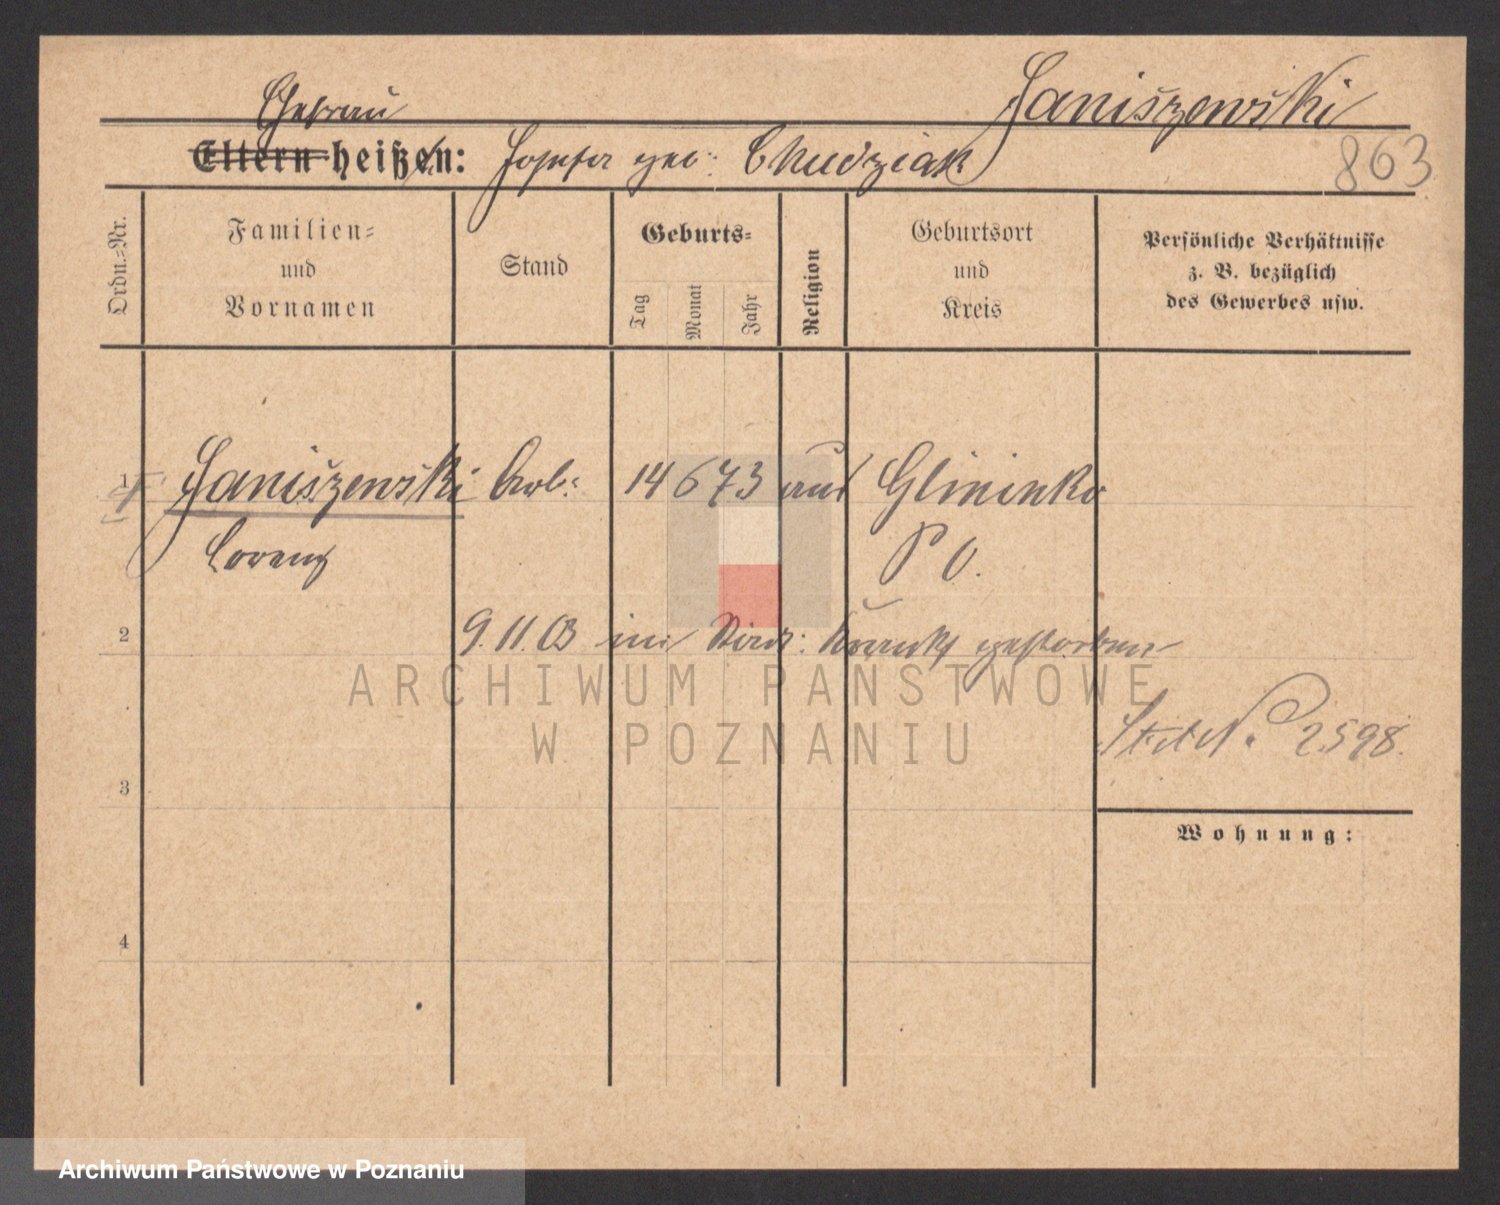 Janiszewski
Ehefrau
Eltern heißen: Josefa geb: Chudziak
863
Ordn.-Nr.
Familien-
und
Vornamen
Stand
Geburts-
Tag
Monat
Jahr
Religion
Geburtsort
und
Kreis
Persönliche Verhältnisse
z. B. bezüglich
des Gewerbes usw.
1 Janiszewski Arb: 14 6 73 Glininko
Lorenz P O.
2
9.11.03 im Städt: Krankh gestorben
ARCHIWUM PAŃSTWOWE
W POZNANIU
2598.
3
Wohnung:
4
Archiwum Państwowe w Poznaniu